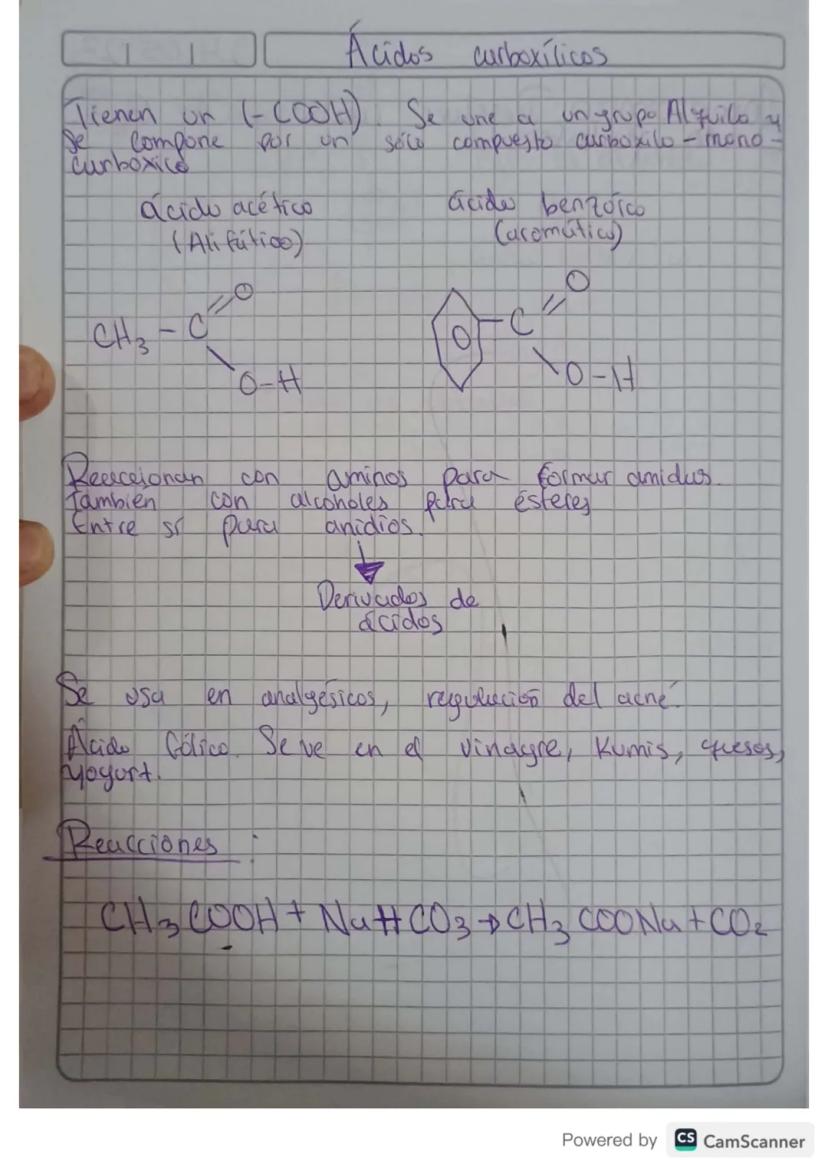 Ácidos curboxílicos
Tienen un (-COOH). Se une a un grupo Alquilo y
se compone por un sólo compuesto curboxilo - mono -
curboxico
ácido acético
(Alifático)
ácido benzóico
(aromático)
CH3 - C
O
O-H
C
O
O-H
Reaccionan con aminos para formar amidas.
También con alcoholes para ésteres
Entre sí para anidios.
Derivados de
ácidos
Se usa en analgésicos, regulación del acné.
Ácido fólico. Se ve en el vinagre, Kumis, quesos,
yogurt.
Reacciones :
CH3COOH + NaHCO3 → CH3COONa + CO2
Powered by CS CamScanner